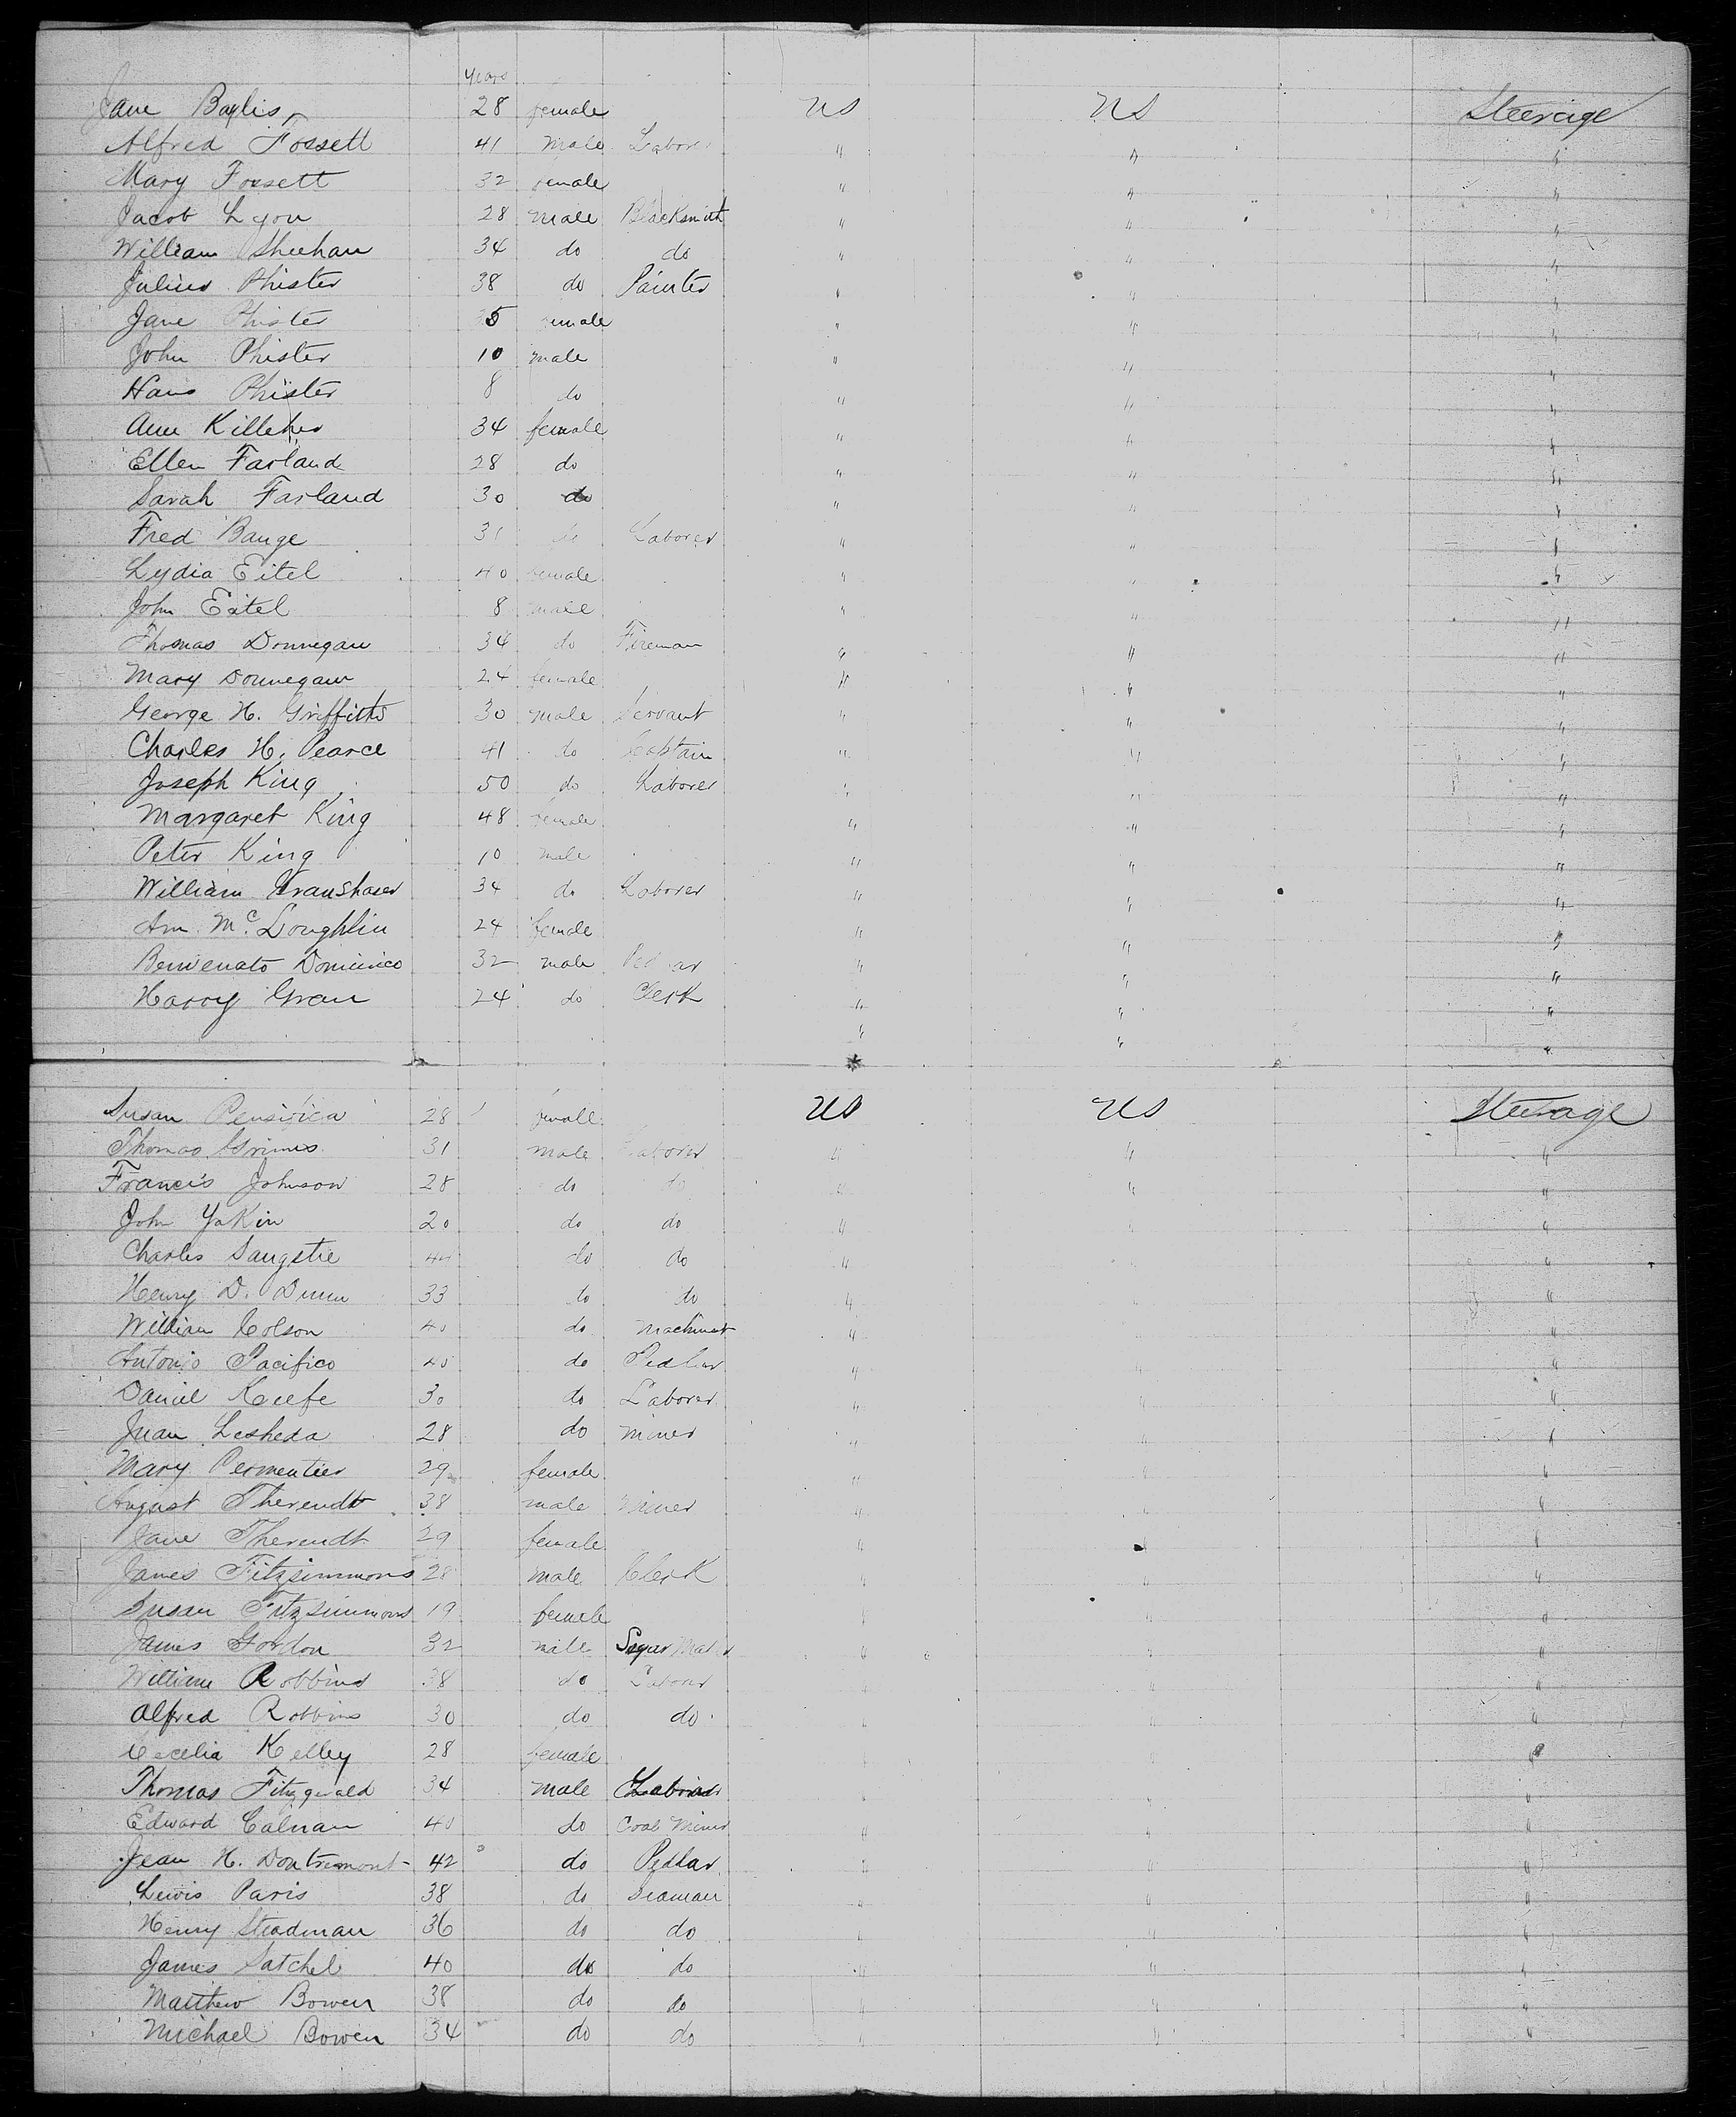 years
Jane Baylis, 28 female US US Steerage
Alfred Fossett 41 male Labore " " "
Mary Fossett 32 female " " "
Jacob Lyon 28 male Blacksmith " " "
William Sheehan 34 do do " " "
Julius Phister 38 do Painter " " "
Jane Phister 5 female " " "
John Phister 10 male " " "
Hans Phister 8 do " " "
Ann Killeher 34 female " " "
Ellen Farland 28 do " " "
Sarah Farland 30 do " " "
Fred Bange 31 do Laborer " " "
Lydia Eitel 40 female " " "
John Eitel 8 male " " "
Thomas Donnegan 34 do Fireman " " "
Mary Donnegan 24 female " " "
George H. Griffiths 30 male Servant " " "
Charles H. Pearce 41 do Captain " " "
Joseph King 50 do Laborer " " "
Margaret King 48 female " " "
Peter King 10 male " " "
William 34 do Laborer " " "
Ann McLoughlin 24 female " " "
Benvenato Dominico 32 male " " "
Harry Gran 24 do Clerk " " "
" " "
Susan 28 female US US Steerage
Thomas Grimes 31 male Laborer " " "
Francis Johnson 28 do do " " "
John Yakin 20 do do " " "
Charles Sangstie 44 do do " "
Henry D. Dunn 33 do do " " "
William Colson 40 do Machinist " "
Antonio Pacifico 45 do Pedlar " " "
Daniel Keefe 30 do Laborer " " "
Juan Lesheda 28 do Miner " " "
Mary Permentier 29 female " " "
August Therendt 38 male Miner " " "
Jane Therendt 29 female " " "
James Fitzsimmons 28 male Clerk " " "
Susan Fitzsimmons 19 female " " "
James Gordon 32 male Segar " " "
William Robbins 38 do Laborer " " "
Alfred Robbins 30 do do " " "
Cecelia Kelley 28 female " "
Thomas Fitzgerald 34 male Laborer " " "
Edward Calnan 40 do Coal Miner " " "
Jean H. Dontremont 42 do Pedlar " " "
Lewis Paris 38 do Seaman " " "
Henry Steadman 36 do do " " "
James Satchel 40 do do " " "
Matthew Bowen 38 do do " " "
Michael Bowen 34 do do " " "